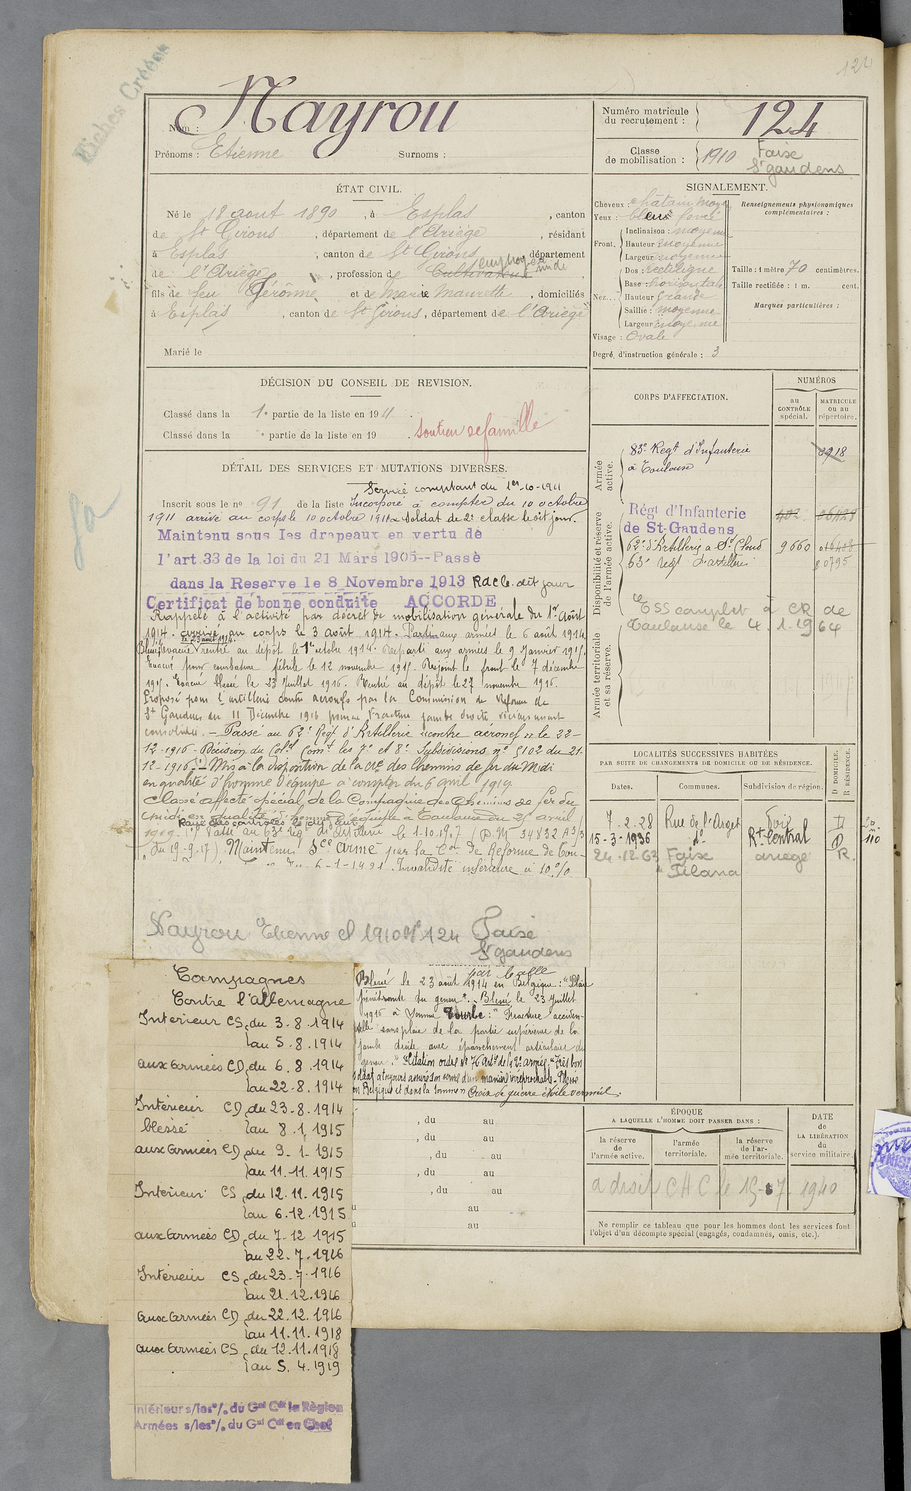 Fiches Créées
124
Nom : Nayrou
Prénoms : Etienne Surnoms :
Numéro matricule du recrutement : 124
Classe de mobilisation : 1910
Foixe
St gaudens
ÉTAT CIVIL.
Né le 18 aout 1890, à Esplas, canton
de St Girons, département de l'Ariège, résidant
à Esplas, canton de St Girons, département
de l'Ariège, profession de Cultivateur employé
fils de feu Gérôme et de Marie Maurette, domiciliés
à Esplas, canton de St Girons, département de l'Ariège
Marié le
SIGNALEMENT.
Cheveux : châtain moy
Yeux : bleus foncé
Front, Inclinaison : moyenne
Hauteur moyenne
Largeur moyenne
Nez... Dos : rectiligne
Base : horizontale
Hauteur grande
Saillie : moyenne
Largeur moyenne
Visage : ovale
Degré d'instruction générale : 3
Renseignements physionomiques complémentaires :
Taille : 1 mètre 70 centimètres.
Taille rectifiée : 1 m. cent.
Marques particulières :
DÉCISION DU CONSEIL DE REVISION.
Classé dans la 1e partie de la liste en 1911.
Classé dans la e partie de la liste en 19 . Soutien de famille
DÉTAIL DES SERVICES ET MUTATIONS DIVERSES.
Service comptant du 1er-10-1911
Inscrit sous le no 91 de la liste Incorporé à compter du 10 octobre
1911 arrivé au corps le 10 octobre 1911 Soldat de 2e classe le dit jour.
Maintenu sous les drapeaux en vertu de
l'art.33 de la loi du 21 Mars 1905--Passé
dans la Reserve le 8 Novembre 1913 Rdcle. dit jour
Certificat de bonne conduite ACCORDE
Rappelé à l'activité par décret de mobilisation générale du 1er Août
1914. arrivé au corps le 3 août 1914. Parti aux armées le 6 août 1914
Blessé le 23 août 1914. évacué rentré au dépôt le 1er octobre 1914. Reparti aux armées le 9 Janvier 1915.
Evacué pour courbature fébrile le 12 novembre 1915. Rejoint le front le 7 décembre
1915. Evacué blessé le 23 Juillet 1916. Rentré au dépôt le 27 novembre 1916.
Proposé pour l'artillerie contre aeronefs par la Commission de réforme de
St Gaudens du 11 Décembre 1916 pour Fracture jambe droite vicieusement
consolidée. - Passé au 62e Régt d'Artillerie contre aeronefs le 22-
12-1916 - Décision du Colel Comt les 7e et 8e Subdivisions no 5102 du 21-
12-1916. - Mis à la disposition de la Cie des Chemins de fer du Midi
en qualité d'homme d'équipe à compter du 6 avril 1919
Classé affecté spécial de la Compagnie des Chemins de fer du
Midi en qualité d'homme d'équipe à Toulouse du 25 avril
1919. Passé au 63e régt d'artillerie le 1.10.19.7 (D.M. 34832 A3/3
du 19-9-17) Maintenu Sce armé par la Con de Réforme de Tou-
Invalidité inférieure à 10%
Nayrou Etienne cl 1910 No 124 Foixe
St gaudens
CORPS D'AFFECTATION.
NUMÉROS
au CONTRÔLE spécial.
MATRICULE ou au répertoire.
Armée active.
83e Regt d'Infanterie
à Toulouse
0918
Disponibilité et réserve de l'armée active.
Régt d'Infanterie
de St-Gaudens
62e d'Artillerie à St Cloud 9660
63e régt d'artillerie
Armée territoriale et sa réserve.
ESS complet à CR de
Toulouse le 4.1-1964
LOCALITÉS SUCCESSIVES HABITÉES
PAR SUITE DE CHANGEMENTS DE DOMICILE OU DE RÉSIDENCE.
D. DOMICILE.
R. RÉSIDENCE.
Dates. Communes. Subdivision de région.
7-2-28 Rue de l'Arget Foix D
15-3-1936 do Rt Central D
24-12-63 Foixe ariege R.
Pilana
par balle
Blessé le 23 août 1914 en Belgique : "Plaie
pénétrante du genou". Blessé le 23 Juillet
1916 à Somme Tourbe : "Fracture acciden-
telle sans plaie de la partie supérieure de la
jambe droite avec épanchement articulaire du
genou." Citation ordre No 76 Art de la 2e armée "Très bon
soldat a toujours assuré son service d'une manière irréprochable. Blessé
en Belgique et dans la Somme" Croix de guerre étoile vermeil.
, du au
, du au
, du au
, du au
, du au
au
au
Campagnes
Contre l'Allemagne
Intérieur CS, du 3.8.1914
au 5.8.1914
aux armées CD, du 6.8.1914
au 22.8.1914
Intérieur CD, du 23.8.1914
blessé au 8.1.1915
aux armées CD, du 9.1.1915
au 11.11.1915
Intérieur CS, du 12.11.1915
au 6.12.1915
aux armées CD, du 7.12.1915
au 22.7.1916
Intérieur CS, du 23.7.1916
au 21.12.1916
aux armées CD, du 22.12.1916
au 11.11.1918
aux armées CS, du 12.11.1918
au 5.4.1919
Intérieur s/les º/. du Gal Cdt la Région
Armées s/les º/. du Gal Cdt en Chef
ÉPOQUE
A LAQUELLE L'HOMME DOIT PASSER DANS :
la réserve de l'armée active.
l'armée territoriale.
la réserve de l'armée territoriale.
DATE de LA LIBÉRATION du service militaire.
a droit CHC le 15-7-1940
Ne remplir ce tableau que pour les hommes dont les services font
l'objet d'un décompte spécial (engagés, condamnés, omis, etc.).